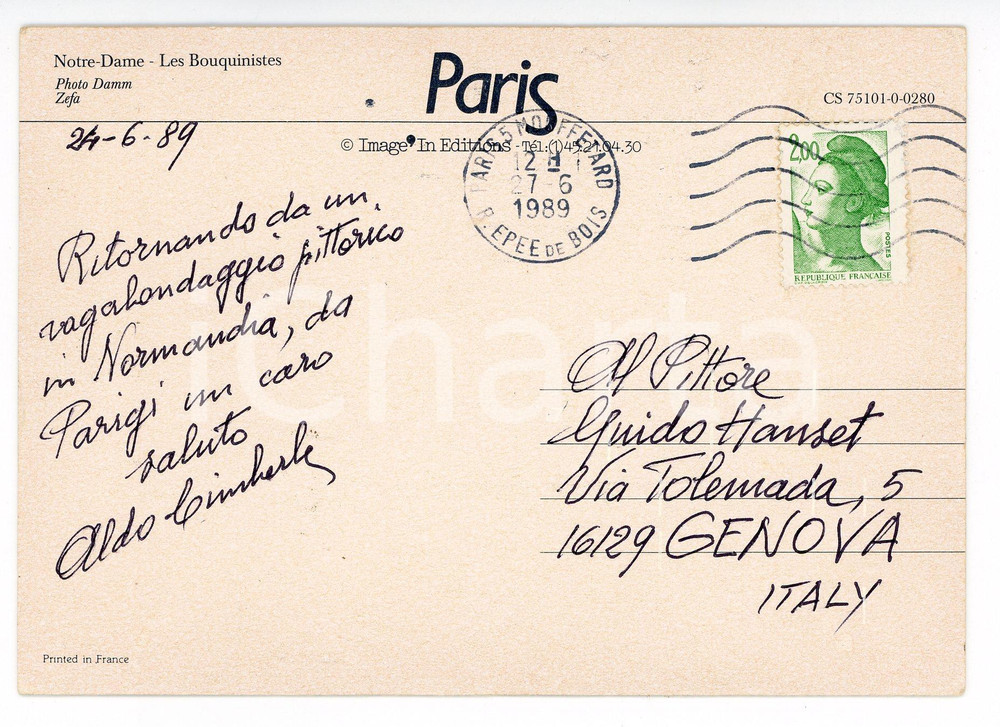 Notre-Dame - Les Bouquinistes
Photo Damm
Zefa
Paris
CS 75101-0-0280
24-6-89
© Image In Editions - Tél. (1) 45.21.04.30
PARIS 5 MOUFFETARD
12 H
27-6
1989
R. EPEE DE BOIS
2,00
POSTES
REPUBLIQUE FRANÇAISE
Ritornando da un
vagabondaggio pittorico
in Normandia, da
Parigi un caro
saluto
Aldo Cimberle
Al Pittore
Guido Hanset
Via Tolemada, 5
16129 GENOVA
ITALY
Printed in France
iCharta